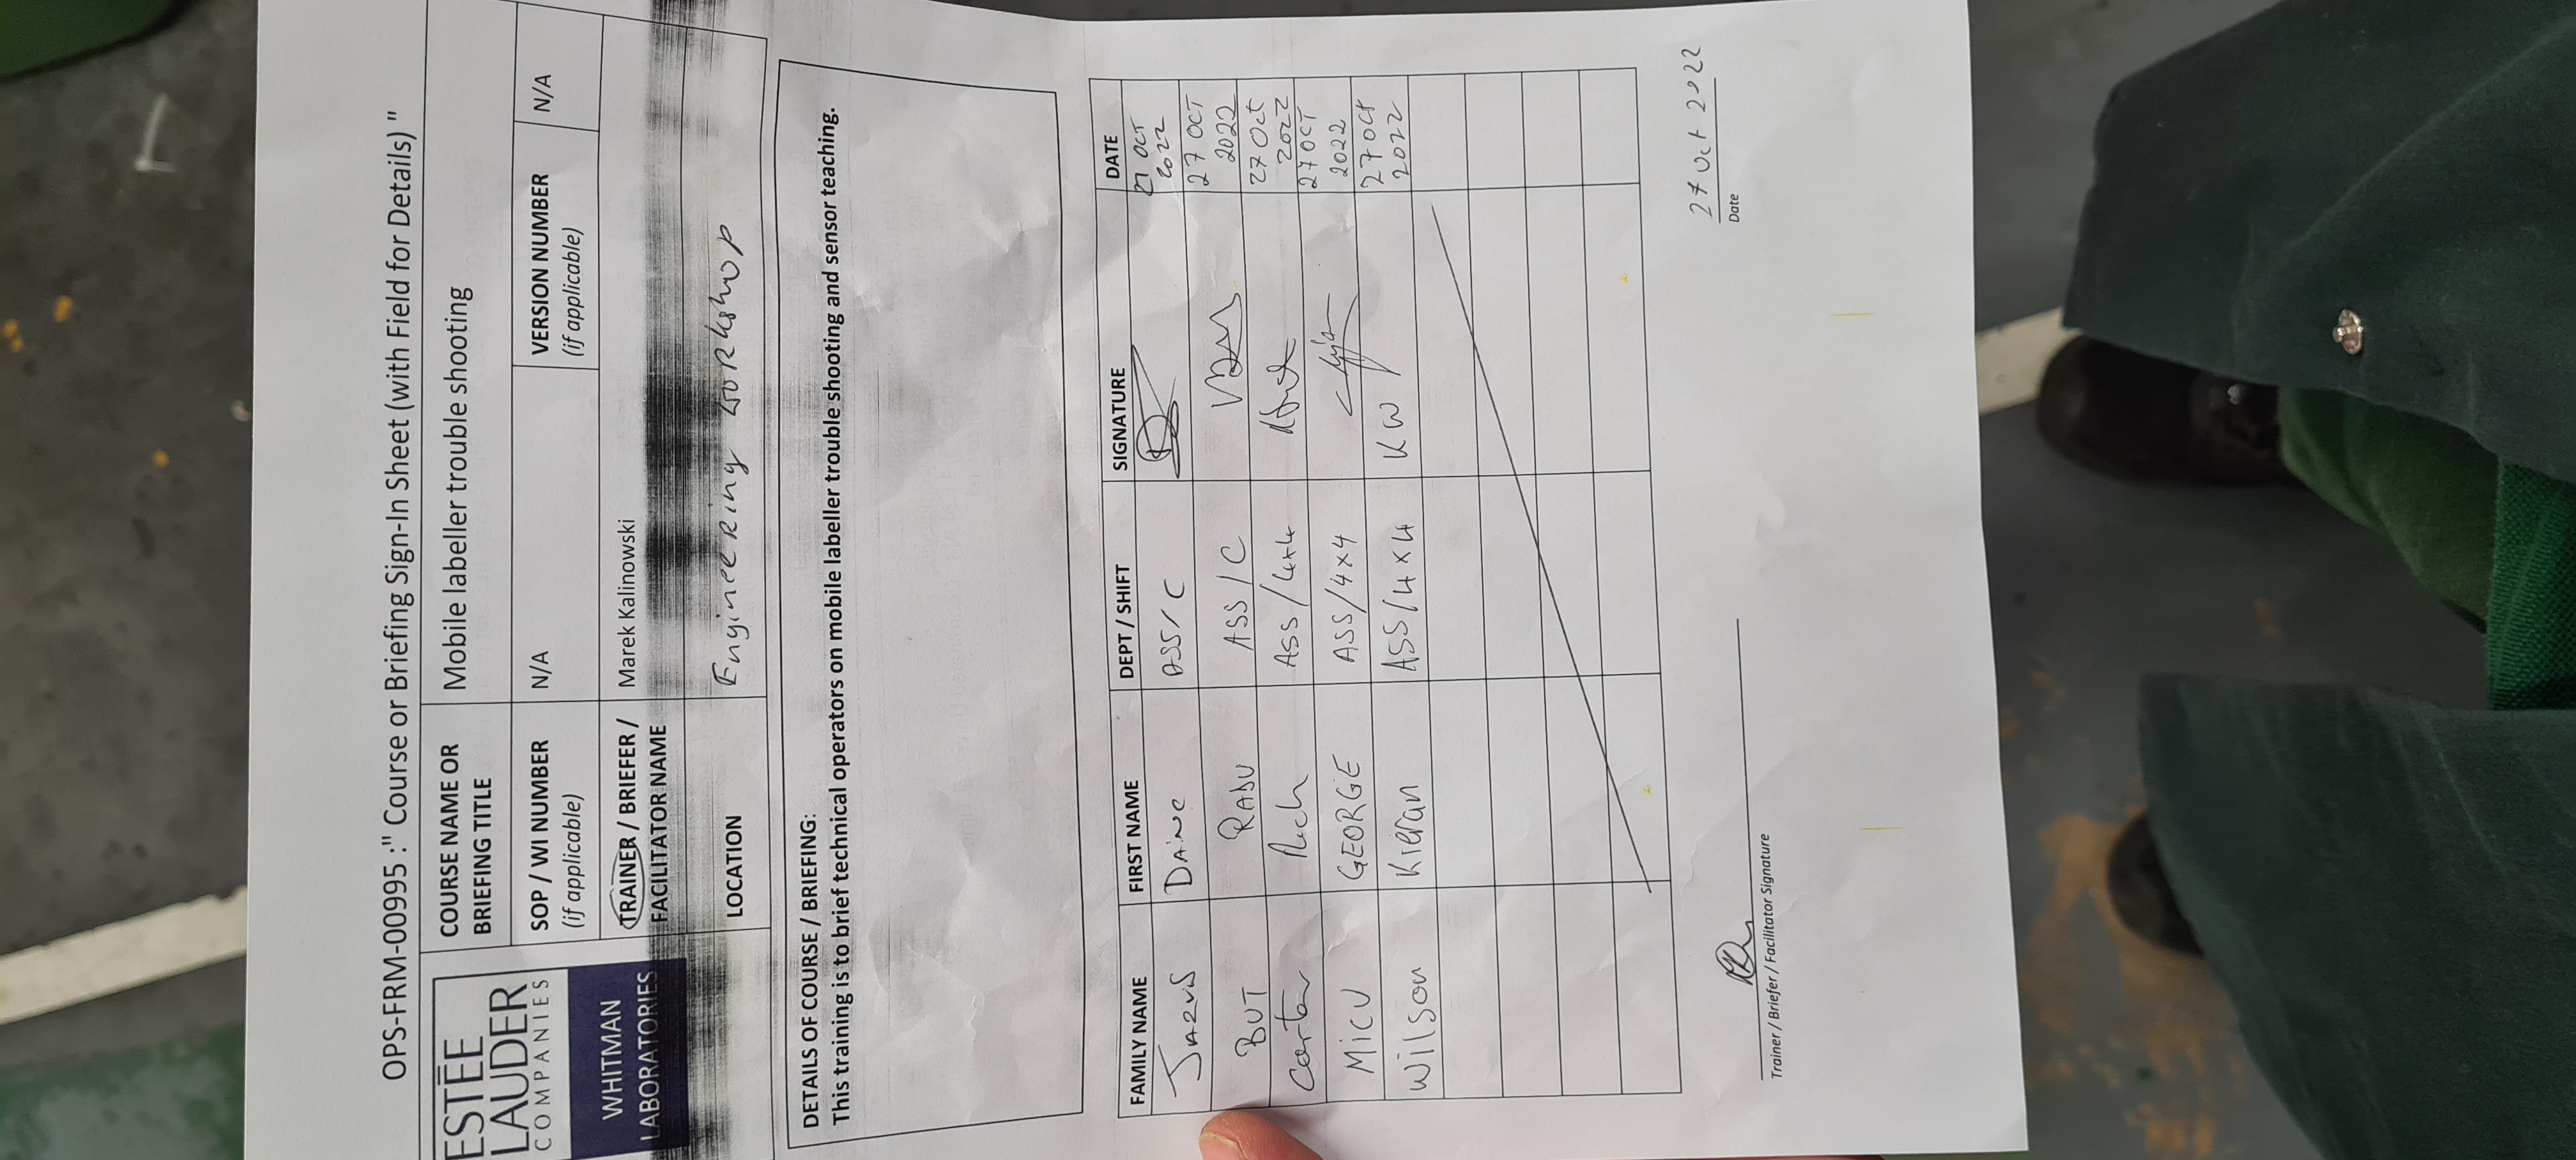 OPS-FRM-00995 :" Course or Briefing Sign-In Sheet (with Field for Details) "
ESTĒE
LAUDER
COMPANIES
WHITMAN
LABORATORIES
COURSE NAME OR
BRIEFING TITLE
Mobile labeller trouble shooting
SOP / WI NUMBER
(if applicable)
N/A
VERSION NUMBER
(if applicable)
N/A
TRAINER / BRIEFER /
FACILITATOR NAME
Marek Kalinowski
LOCATION
Engineering workshop
DETAILS OF COURSE / BRIEFING:
This training is to brief technical operators on mobile labeller trouble shooting and sensor teaching.
FAMILY NAME FIRST NAME DEPT / SHIFT SIGNATURE DATE
ASS/C 27 OCT
2022
BUT RADU ASS/C 27 OCT
2022
Carter ASS/4x4 27 Oct
2022
MICU GEORGE ASS/4x4 27 OCT
2022
Wilson Kieran ASS/4x4 KW 27 Oct
2022
27 Oct 2022
Trainer / Briefer / Facilitator Signature
Date